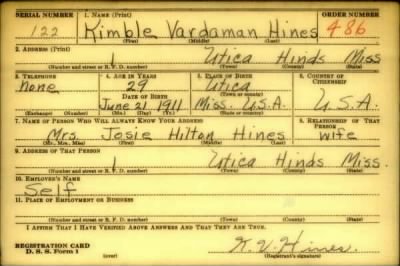 SERIAL NUMBER 1. NAME (Print) ORDER NUMBER
122 Kimble Vardaman Hines 486
(First) (Middle) (Last)
2. ADDRESS (Print)
Utica Hinds Miss
(Number and street or R. F. D. number) (Town) (County) (State)
3. TELEPHONE 4. AGE IN YEARS 5. PLACE OF BIRTH 6. COUNTRY OF CITIZENSHIP
none 29 Utica
DATE OF BIRTH (Town or county)
June 21 1911 Miss. U.S.A. U.S.A.
(Exchange) (Number) (Mo.) (Day) (Yr.) (State or country)
7. NAME OF PERSON WHO WILL ALWAYS KNOW YOUR ADDRESS 8. RELATIONSHIP OF THAT PERSON
Mrs. Josie Hilton Hines wife
(Mr., Mrs., Miss) (First) (Middle) (Last)
9. ADDRESS OF THAT PERSON
1 Utica Hinds Miss.
(Number and street or R. F. D. number) (Town) (County) (State)
10. EMPLOYER'S NAME
Self
11. PLACE OF EMPLOYMENT OR BUSINESS
(Number and street or R. F. D. number) (Town) (County) (State)
I AFFIRM THAT I HAVE VERIFIED ABOVE ANSWERS AND THAT THEY ARE TRUE.
REGISTRATION CARD
D. S. S. Form 1 (over) K. V. Hines
(Registrant's signature)